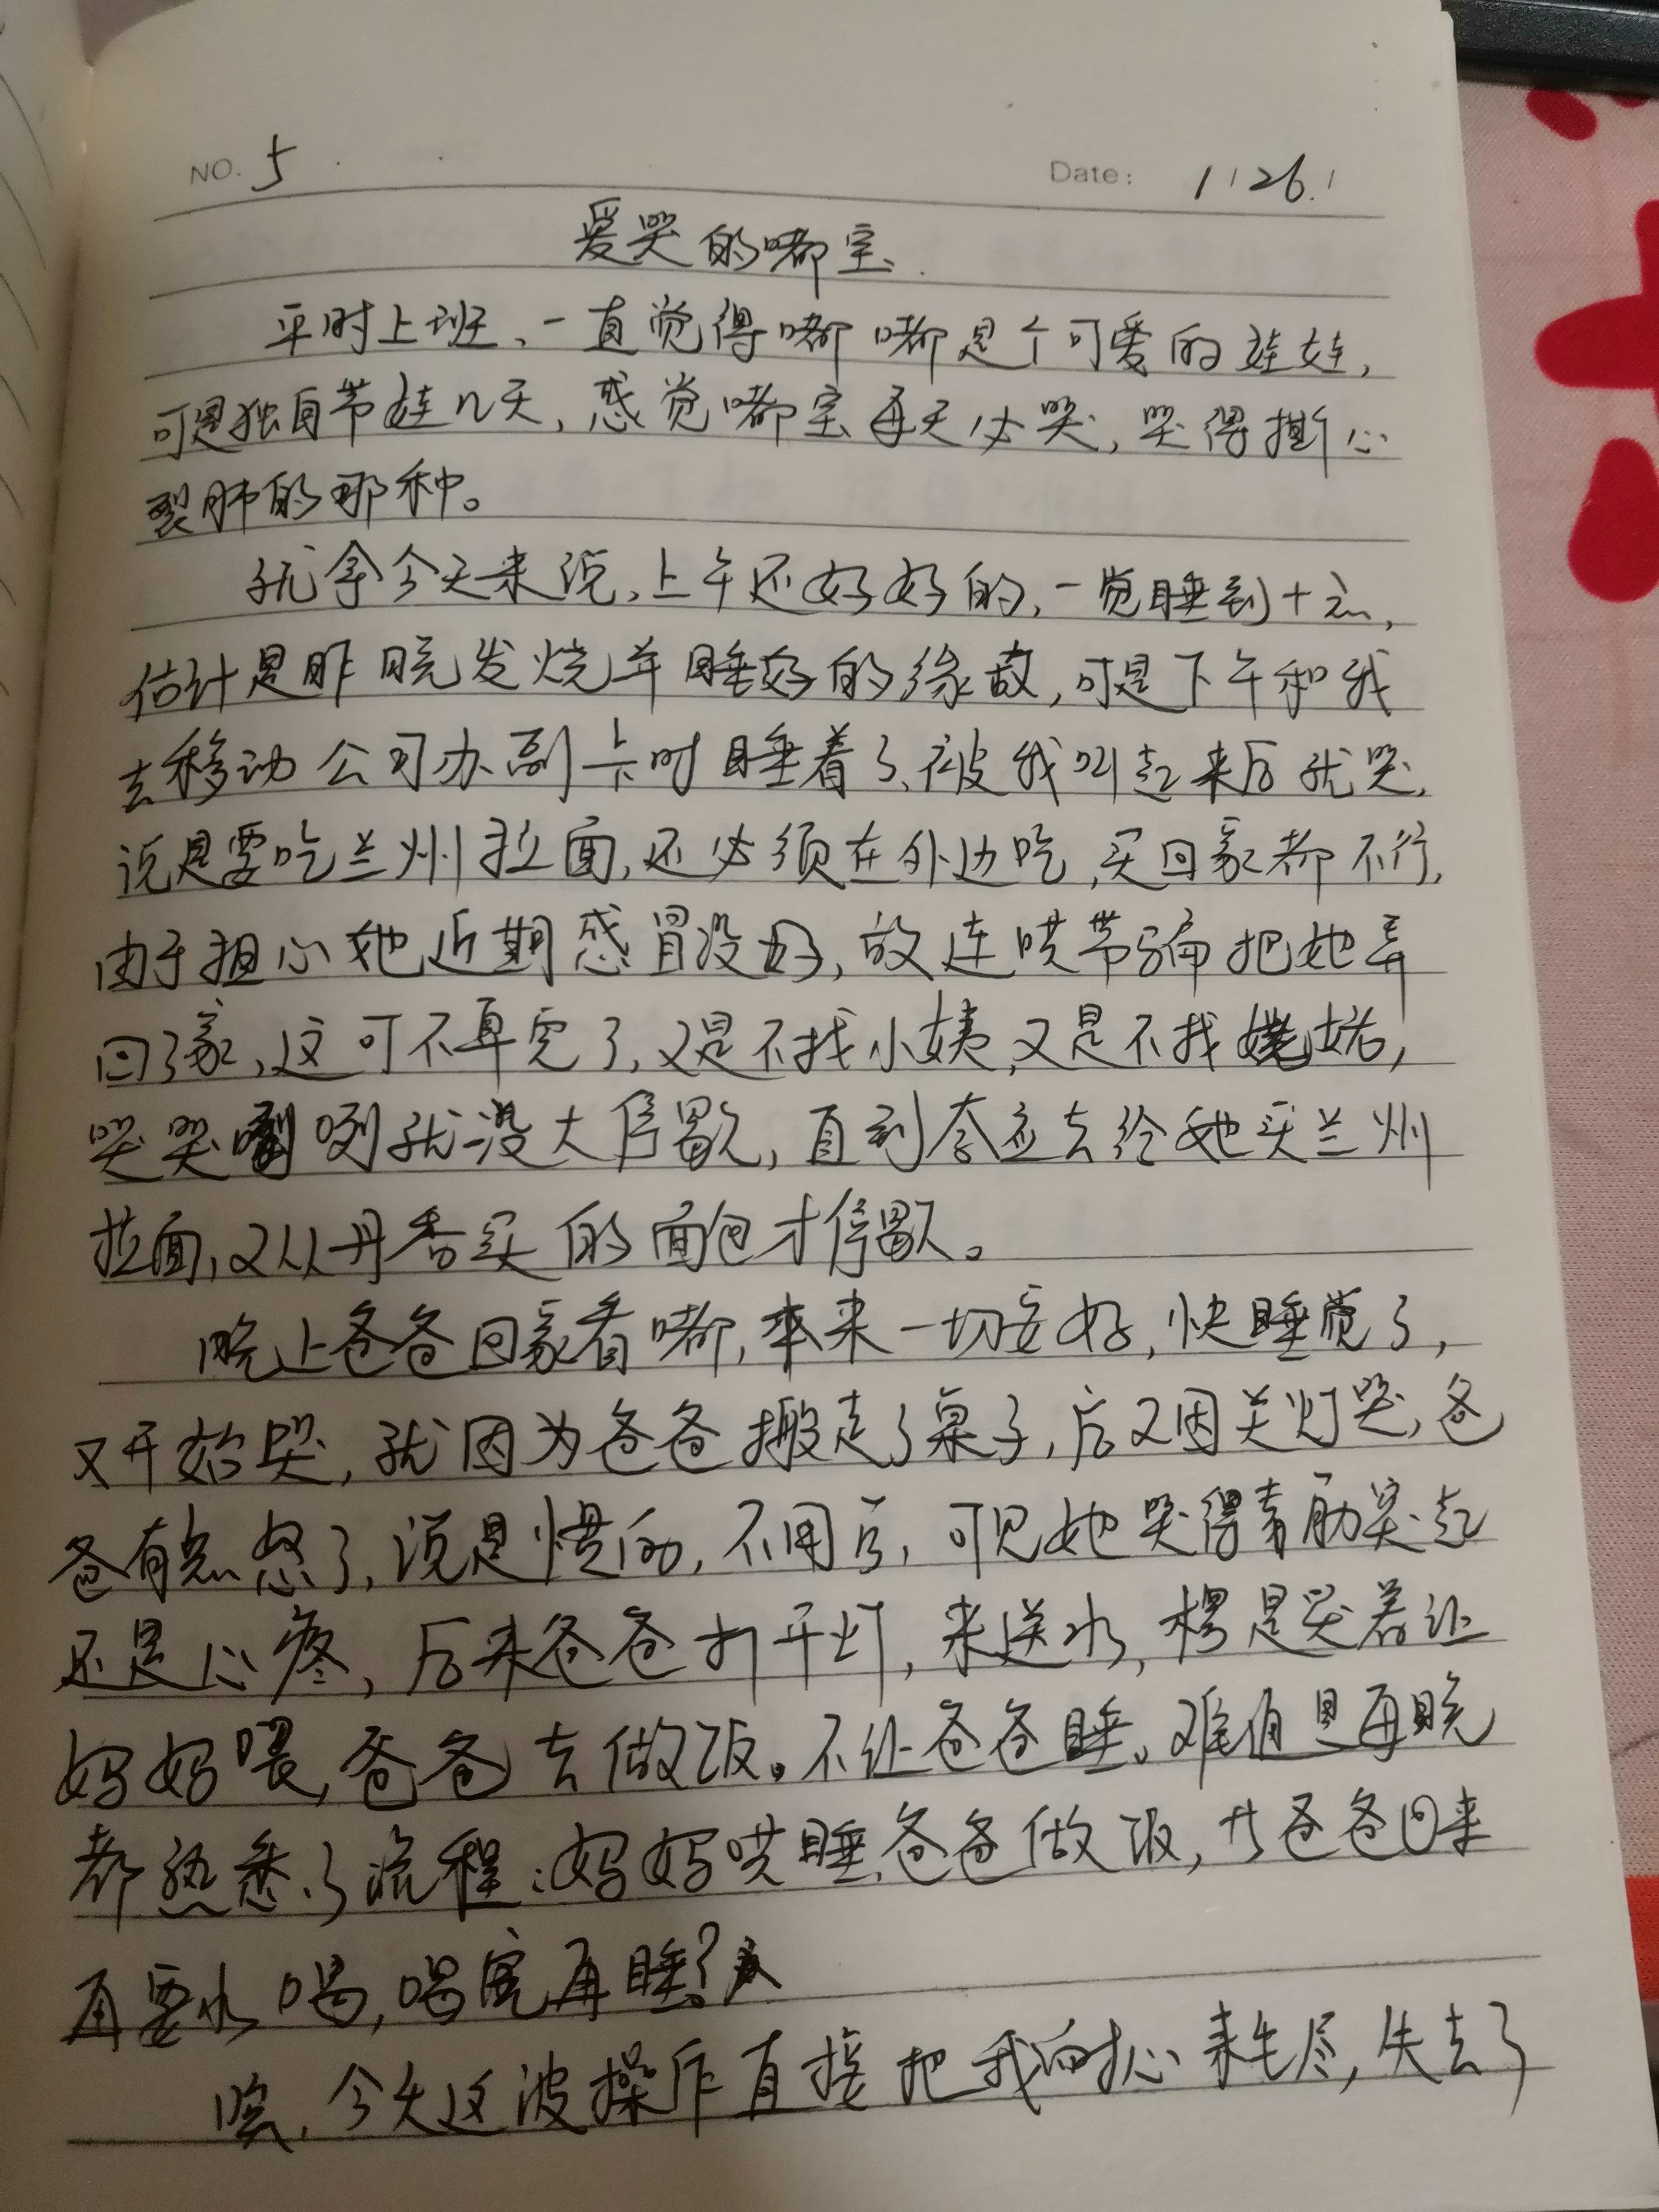 NO. 5
Date: 1/26/
爱哭的嘟宝
平时上班、一直觉得嘟嘟是个可爱的娃娃,
可是独自带娃几天,感觉嘟宝每天必哭,哭得撕心
裂肺的那种。
就拿今天来说,上午还好好的,一觉睡到十点,
估计是昨晚发烧并睡好的缘故,可是下午和我
去移动公司办副卡时睡着了,被我叫起来后就哭,
说是要吃兰州拉面,还必须在外边吃,买回家都不行,
由于担心她近期感冒没好,故连哄带骗把她弄
回了家,这可不算完了,又是不找小姨,又是不找姥姥,
哭哭咧咧就没大停歇,直到答应去给她买兰州
拉面,又从丹香买的面包才停歇。
晚上爸爸回家看嘟,本来一切安好,快睡觉了,
又开始哭,就因为爸爸搬走了桌子,后又因关灯哭,爸
爸有点怒了,说是惯的,不用管,可见她哭得青筋突起
还是心疼,后来爸爸打开灯,来送水,楞是哭着让
妈妈喂,爸爸去做饭。不让爸爸睡。难道是每晚
都熟悉了流程:妈妈哄睡,爸爸做饭,等爸爸回来
再要水喝,喝完再睡?
唉,今天这波操作直接把我的耐心耗尽,失去了